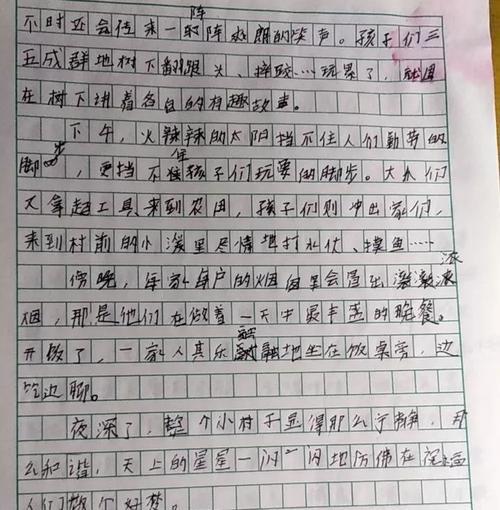 不时还会传来一阵阵爽朗的笑声。孩子们三
五成群地树下翻跟头、摔跤…玩累了,就围
在树下讲着各自的有趣故事。
下午,火辣辣的太阳挡不住人们勤劳的
脚步,更挡不住孩子们玩耍的脚步。大人们
又拿起工具、来到农田,孩子们则冲出家们,
来到村前的小溪里尽情地打水仗、摸鱼……
傍晚,每家每户的烟囱里会冒出滚滚浓
烟,那是他们在做着一天中最丰盛的晚餐。
开饭了,一家人其乐融融地坐在饭桌旁,边
吃边聊。
夜深了,整个小村子显得那么宁静,那
么和谐,天上的星星一闪一闪地仿佛在祝福
人们做个好梦。